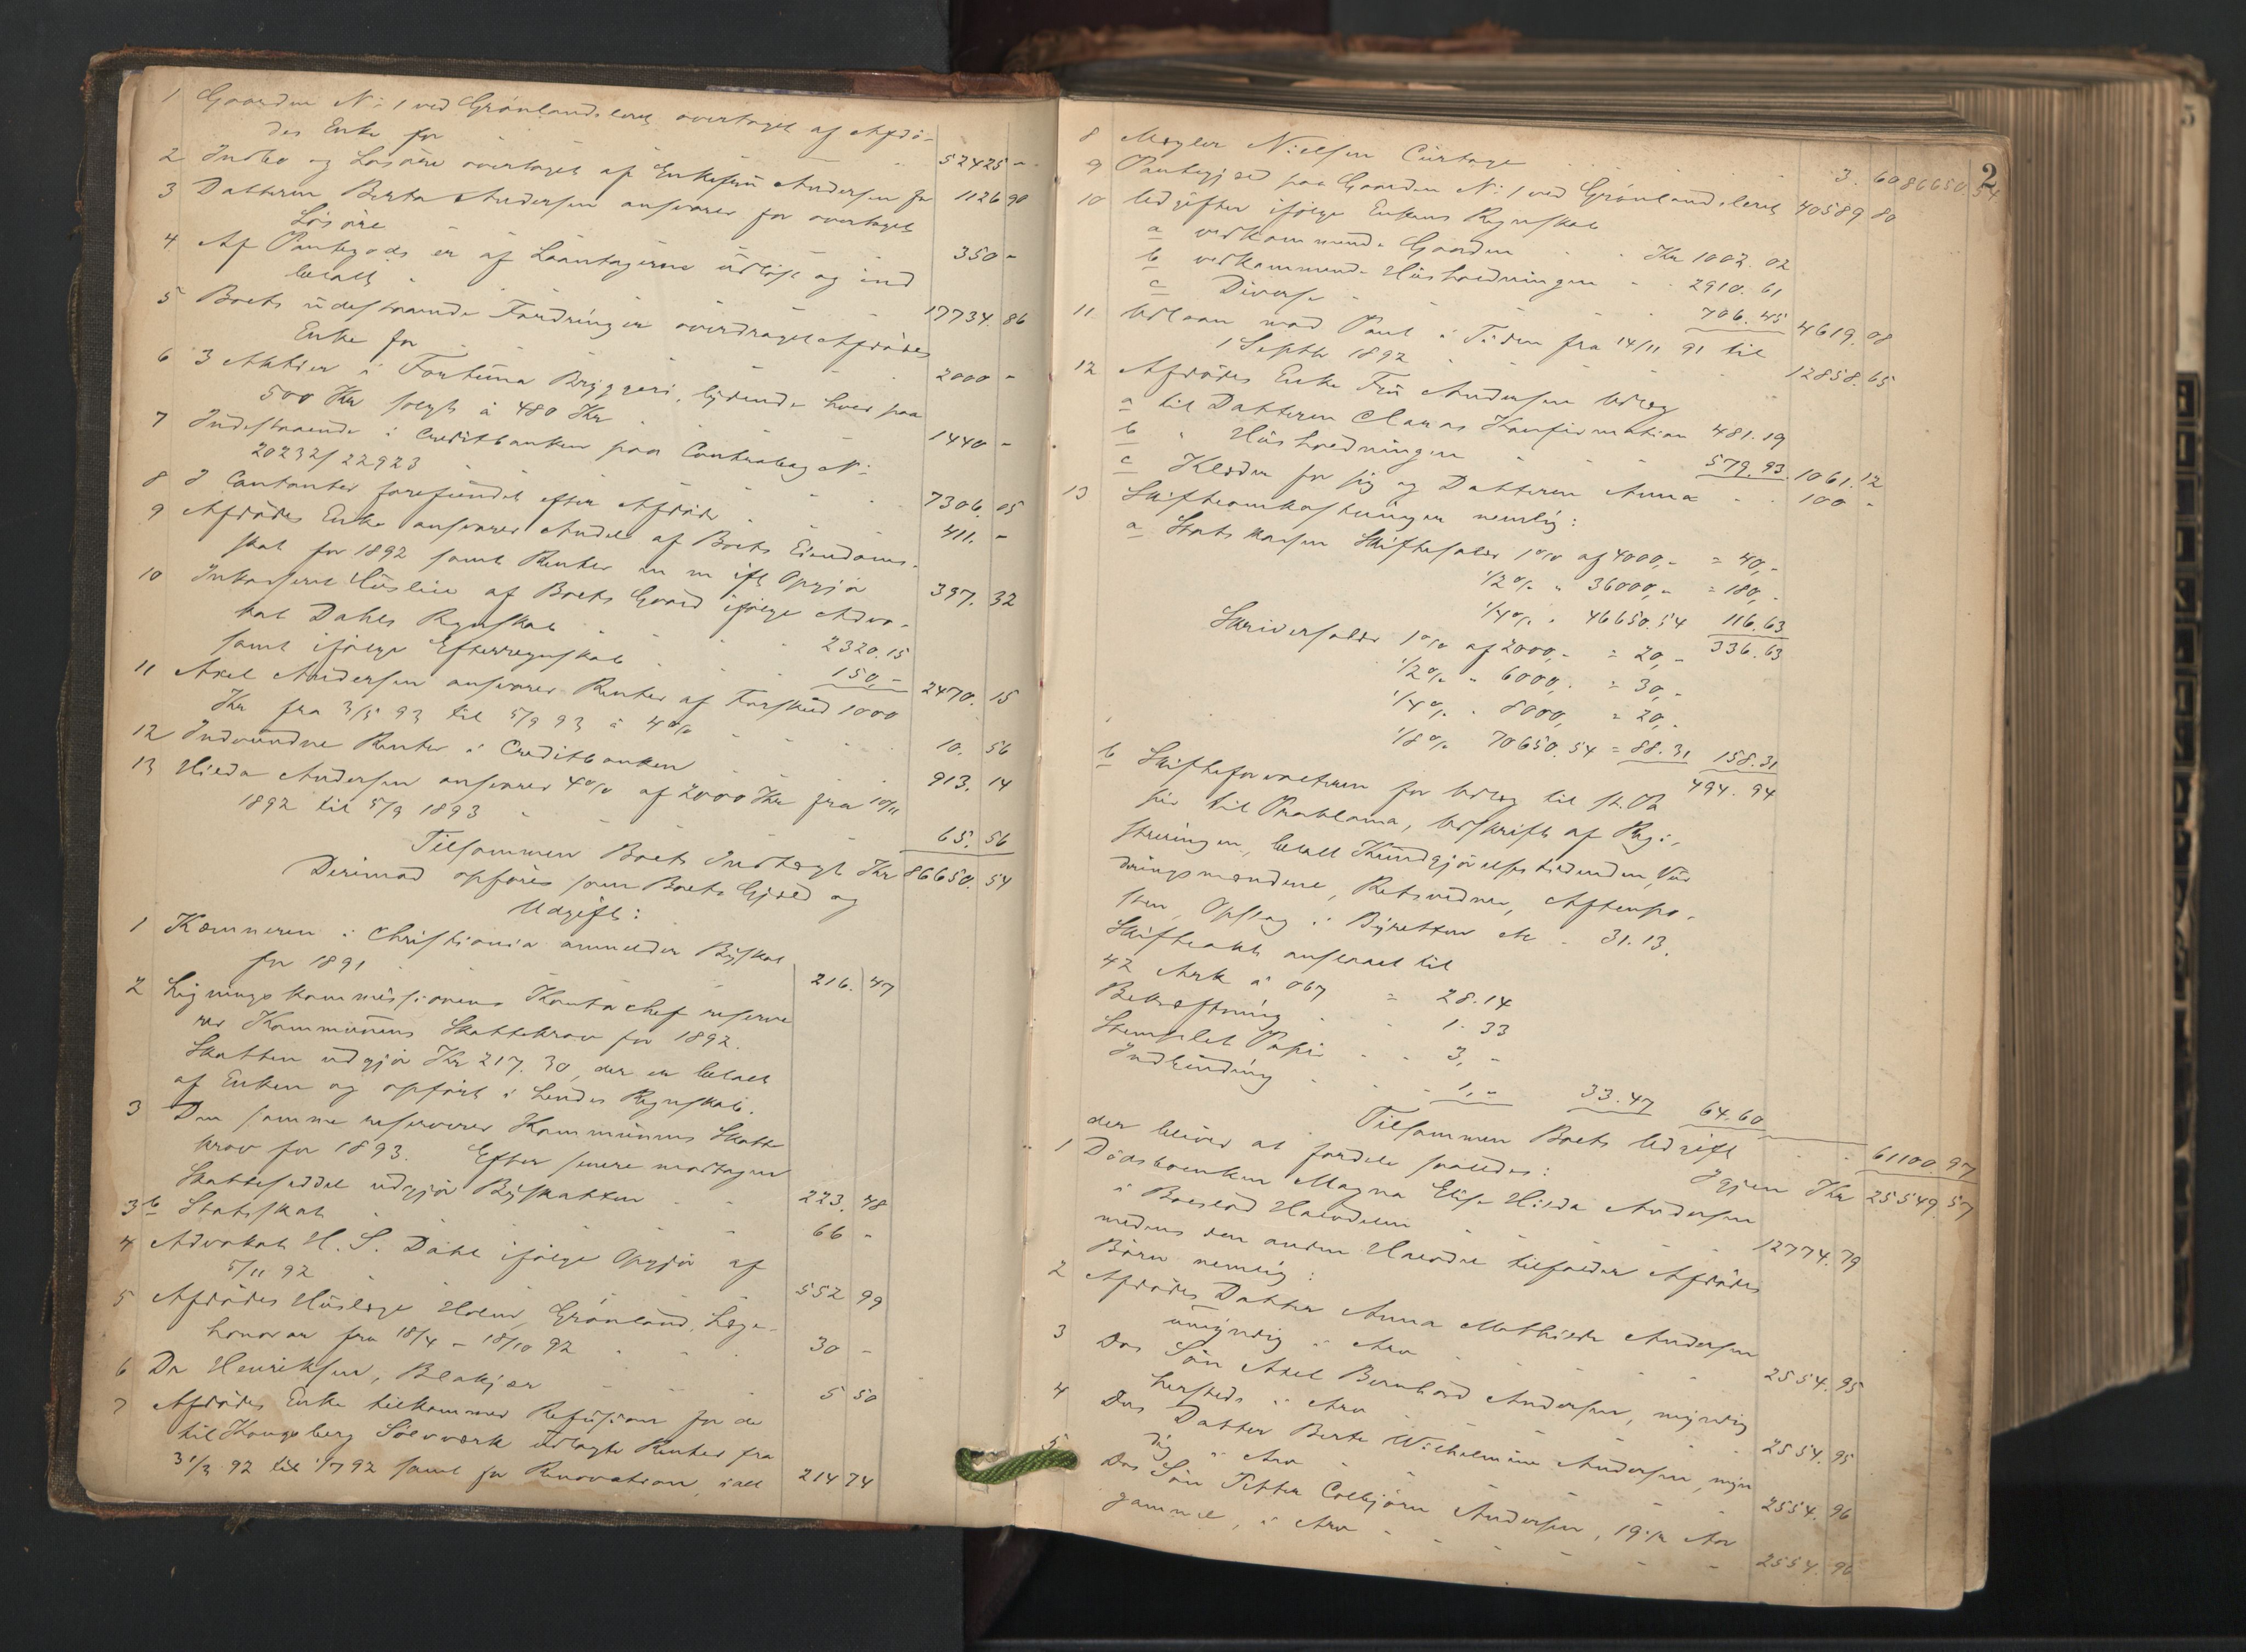 1 Gaarden No 1 ved Grønlandsleret overtaget af Afdø-
des Enke for 52425 -
2 Indbo og Løsøre overtaget af Enkefru Andersen for 1126 90
3 Datteren Berta Andersen ansvarer for overtaget
Løsøre 350 -
4 Af Pantegods er af Laantagerne udløst og ind
betalt 17734. 86
5 Boets udestaaende Fordringer overdraget Afdødes
Enke for 2000 -
6 3 Aktier i Fortuna Bryggeri, lydende hver paa
500 Kr solgt á 480 Kr 1440 -
7 Indestaaende i Creditbanken paa Contrabog No
20232/22923 7306. 05
8 I Contanter forefundet efter Afdøde 411. -
9 Afdødes Enke ansvarer Andel af Boets Eiendoms-
skat for 1892 samt Renter m m ifl Opgjør 397. 32
10 Inkasseret Husleie af Boets Gaard ifølge Advo-
kat Dahls Regnskab 2320.15
samt ifølge Efterregnskab 150,- 2470. 15
11 Axel Andersen ansvarer Renter af Forskud 1000
Kr fra 3/5 93 til 5/9 93 á 4% 10. 56
12 Indvundne Renter i Creditbanken 913. 14
13 Hilda Andersen ansvarer 4% af 2000 Kr fra 10/11
1892 til 5/9 1893 65. 56
Tilsammen Boets Indtægt Kr 86650. 54
Derimod opføres som Boets Gjæld og
Udgift:
1 Kæmneren i Christiania anmelder Byskat
for 1891 216. 47
2 Ligningskommissionens Kontorchef reserve
rer Kommunens Skattekrav for 1892.
Skatten udgjør Kr 217. 30, der er betalt
af Enken og opført i hendes Regnskab.
3 Den samme reserverer Kommunens Skatte
krav for 1893. Efter senere modtagen
Skatteseddel udgjør Byskatten 223. 48
3 b Statsskat 66 -
4 Advokat H. S. Dahl ifølge Opgjør af
5/11 92 552 99
5 Afdødes Huslæge Holm, Grønland, Læge-
honorar fra 18/4 - 18/10 92 30 -
6 Dr Henriksen, Blakjær 5 50
7 Afdødes Enke tilkommer Refusion for de
til Kongsberg Sølvværk udlagte Renter fra
31/3 92 til 1/7 92 samt for Renovation, ialt 214 74
2
86650. 54
8 Mægler Nielsen Curtage 3. 60
9 Pantegjæld paa Gaarden No 1 ved Grønlandsleret 40589 80
10 Udgifter ifølge Enkens Regnskab
a vedkommende Gaarden Kr 1002. 02
b vedkommende Husholdningen 2910. 61
c Diverse 706. 45 4619. 08
11 Udlaan mod Pant i Tiden fra 14/11 91 til
1 Septbr 1892 12858. 65
12 Afdødes Enke Fru Andersen Udlæg
a til Datteren Claras Konfirmation 481.19
b " Husholdningen 579. 93 1061. 12
c Klæder for sig og Datteren Anna 100 -
13 Skifteomkostninger nemlig:
a Statskassen Skiftesalær 1% af 4000,- = 40,-
1/2% " 36000,- = 180,-
1/4% " 46650.54 116.63
336. 63
Skriversalær 1% af 2000,- = 20,-
1/2% " 6000,- = 30,-
1/4% " 8000, = 20,-
1/8% 70650.54 = 88.31 158.31
494. 94
b Skifteforvalteren for Udlæg til St. Pa
pir til Proklama, Udskrift af Regi-
streringen, betalt Kundgjørelsestidenden, Vur
deringsmændene, Retsvidner, Aftenpo-
sten, Opslag i Byretten etc 31.13.
Skifteakt anslaaet til
42 Ark á 067 = 28.14
Bekræftning 1. 33
Stemplet Papir 3, -
Indbinding 1, - 33.47 64.60
Tilsammen Boets Udgift 61100. 97
Igjen Kr 25549. 57
der bliver at fordele saaledes:
1 Dødsboenken Magna Elise Hilda Andersen
i Boeslod Halvdelen 12774. 79
medens den anden Halvdel tilfalder Afdødes
Børn nemlig:
2 Afdødes Datter Anna Mathilde Andersen
umyndig i Arv 2554. 95
3 Dos Søn Axel Bernhard Andersen, myndig
hersteds i Arv 2554. 95
4 Dos Datter Berta Wilhelmine Andersen, myn
dig i Arv 2554. 96
5 Dos Søn Petter Colbjørn Andersen, 19 1/2 Aar
gammel, i Arv 2554. 96